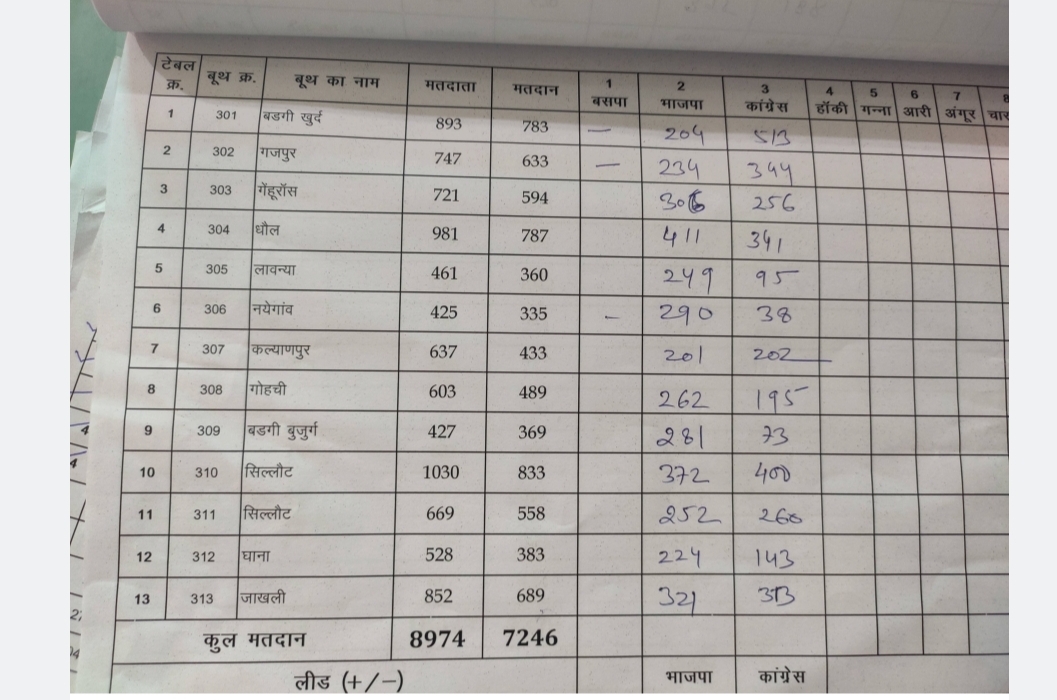 टेबल क्र. बूथ क्र. बूथ का नाम मतदाता मतदान 1 बसपा 2 भाजपा 3 कांग्रेस 4 हॉकी 5 गन्ना 6 आरी 7 अंगूर 8 चार
1 301 बडगी खुर्द 893 783 — 204 513
2 302 गजपुर 747 633 — 234 344
3 303 गेंहूरॉस 721 594 306 256
4 304 धौल 981 787 411 341
5 305 लावन्या 461 360 249 95
6 306 नयेगांव 425 335 - 290 38
7 307 कल्याणपुर 637 433 201 202
8 308 गोहची 603 489 262 195
9 309 बडगी बुजुर्ग 427 369 281 73
10 310 सिल्लौट 1030 833 372 400
11 311 सिल्लौट 669 558 252 260
12 312 घाना 528 383 224 143
13 313 जाखली 852 689 321 313
कुल मतदान 8974 7246
लीड (+/-) भाजपा कांग्रेस